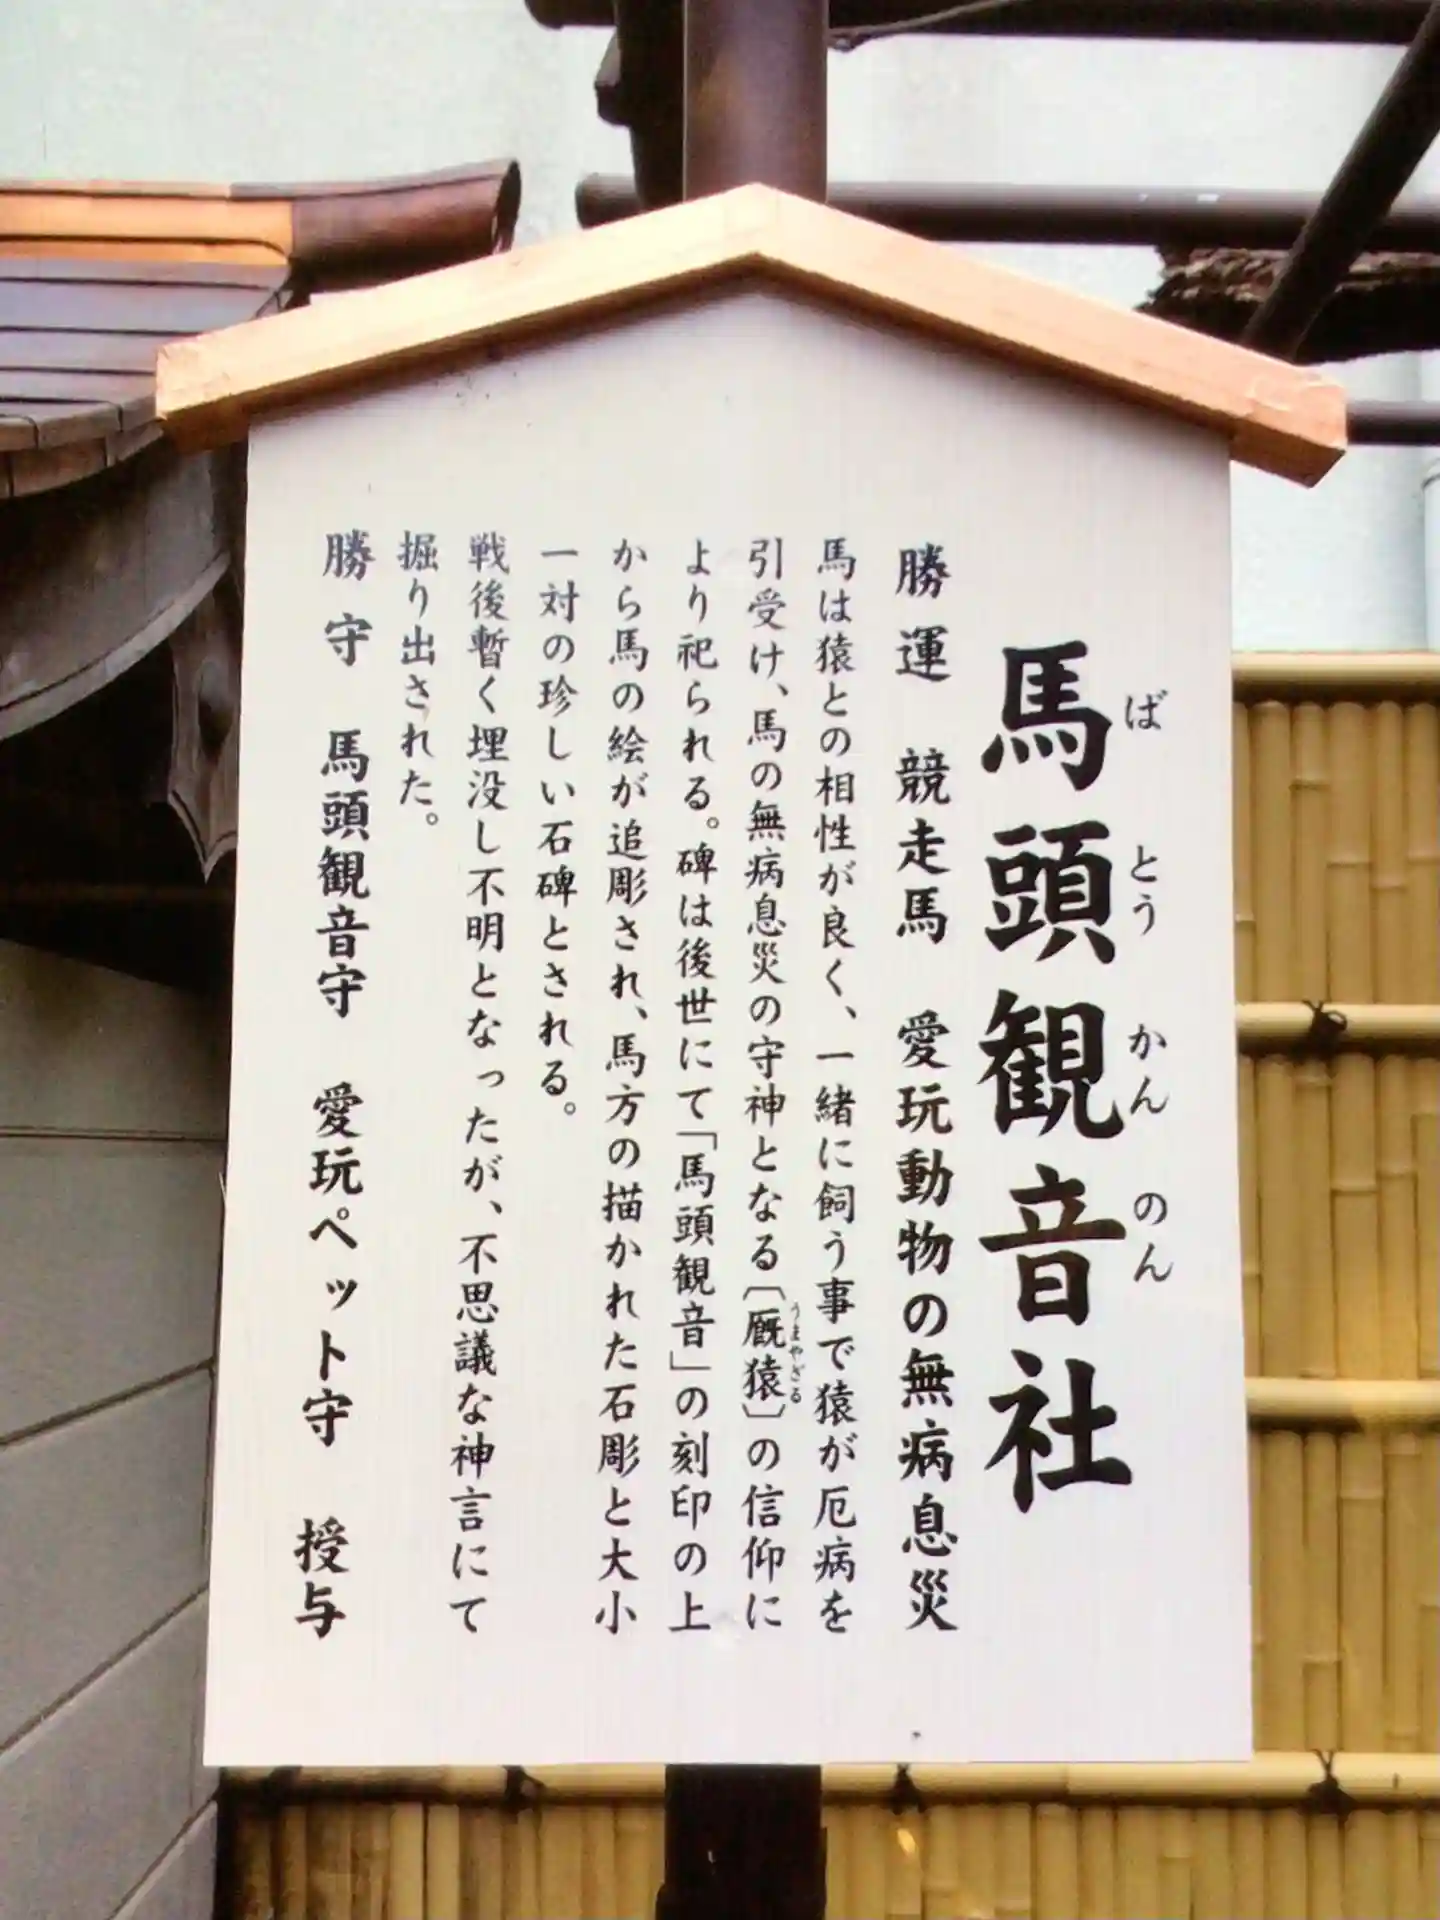 馬頭観音社
ば とう かん のん
勝運 競走馬 愛玩動物の無病息災
馬は猿との相性が良く、一緒に飼う事で猿が厄病を
引受け、馬の無病息災の守神となる〔厩猿〕の信仰に
うまやざる
より祀られる。碑は後世にて「馬頭観音」の刻印の上
から馬の絵が追彫され、馬方の描かれた石彫と大小
一対の珍しい石碑とされる。
戦後暫く埋没し不明となったが、不思議な神言にて
掘り出された。
勝守 馬頭観音守 愛玩ペット守 授与